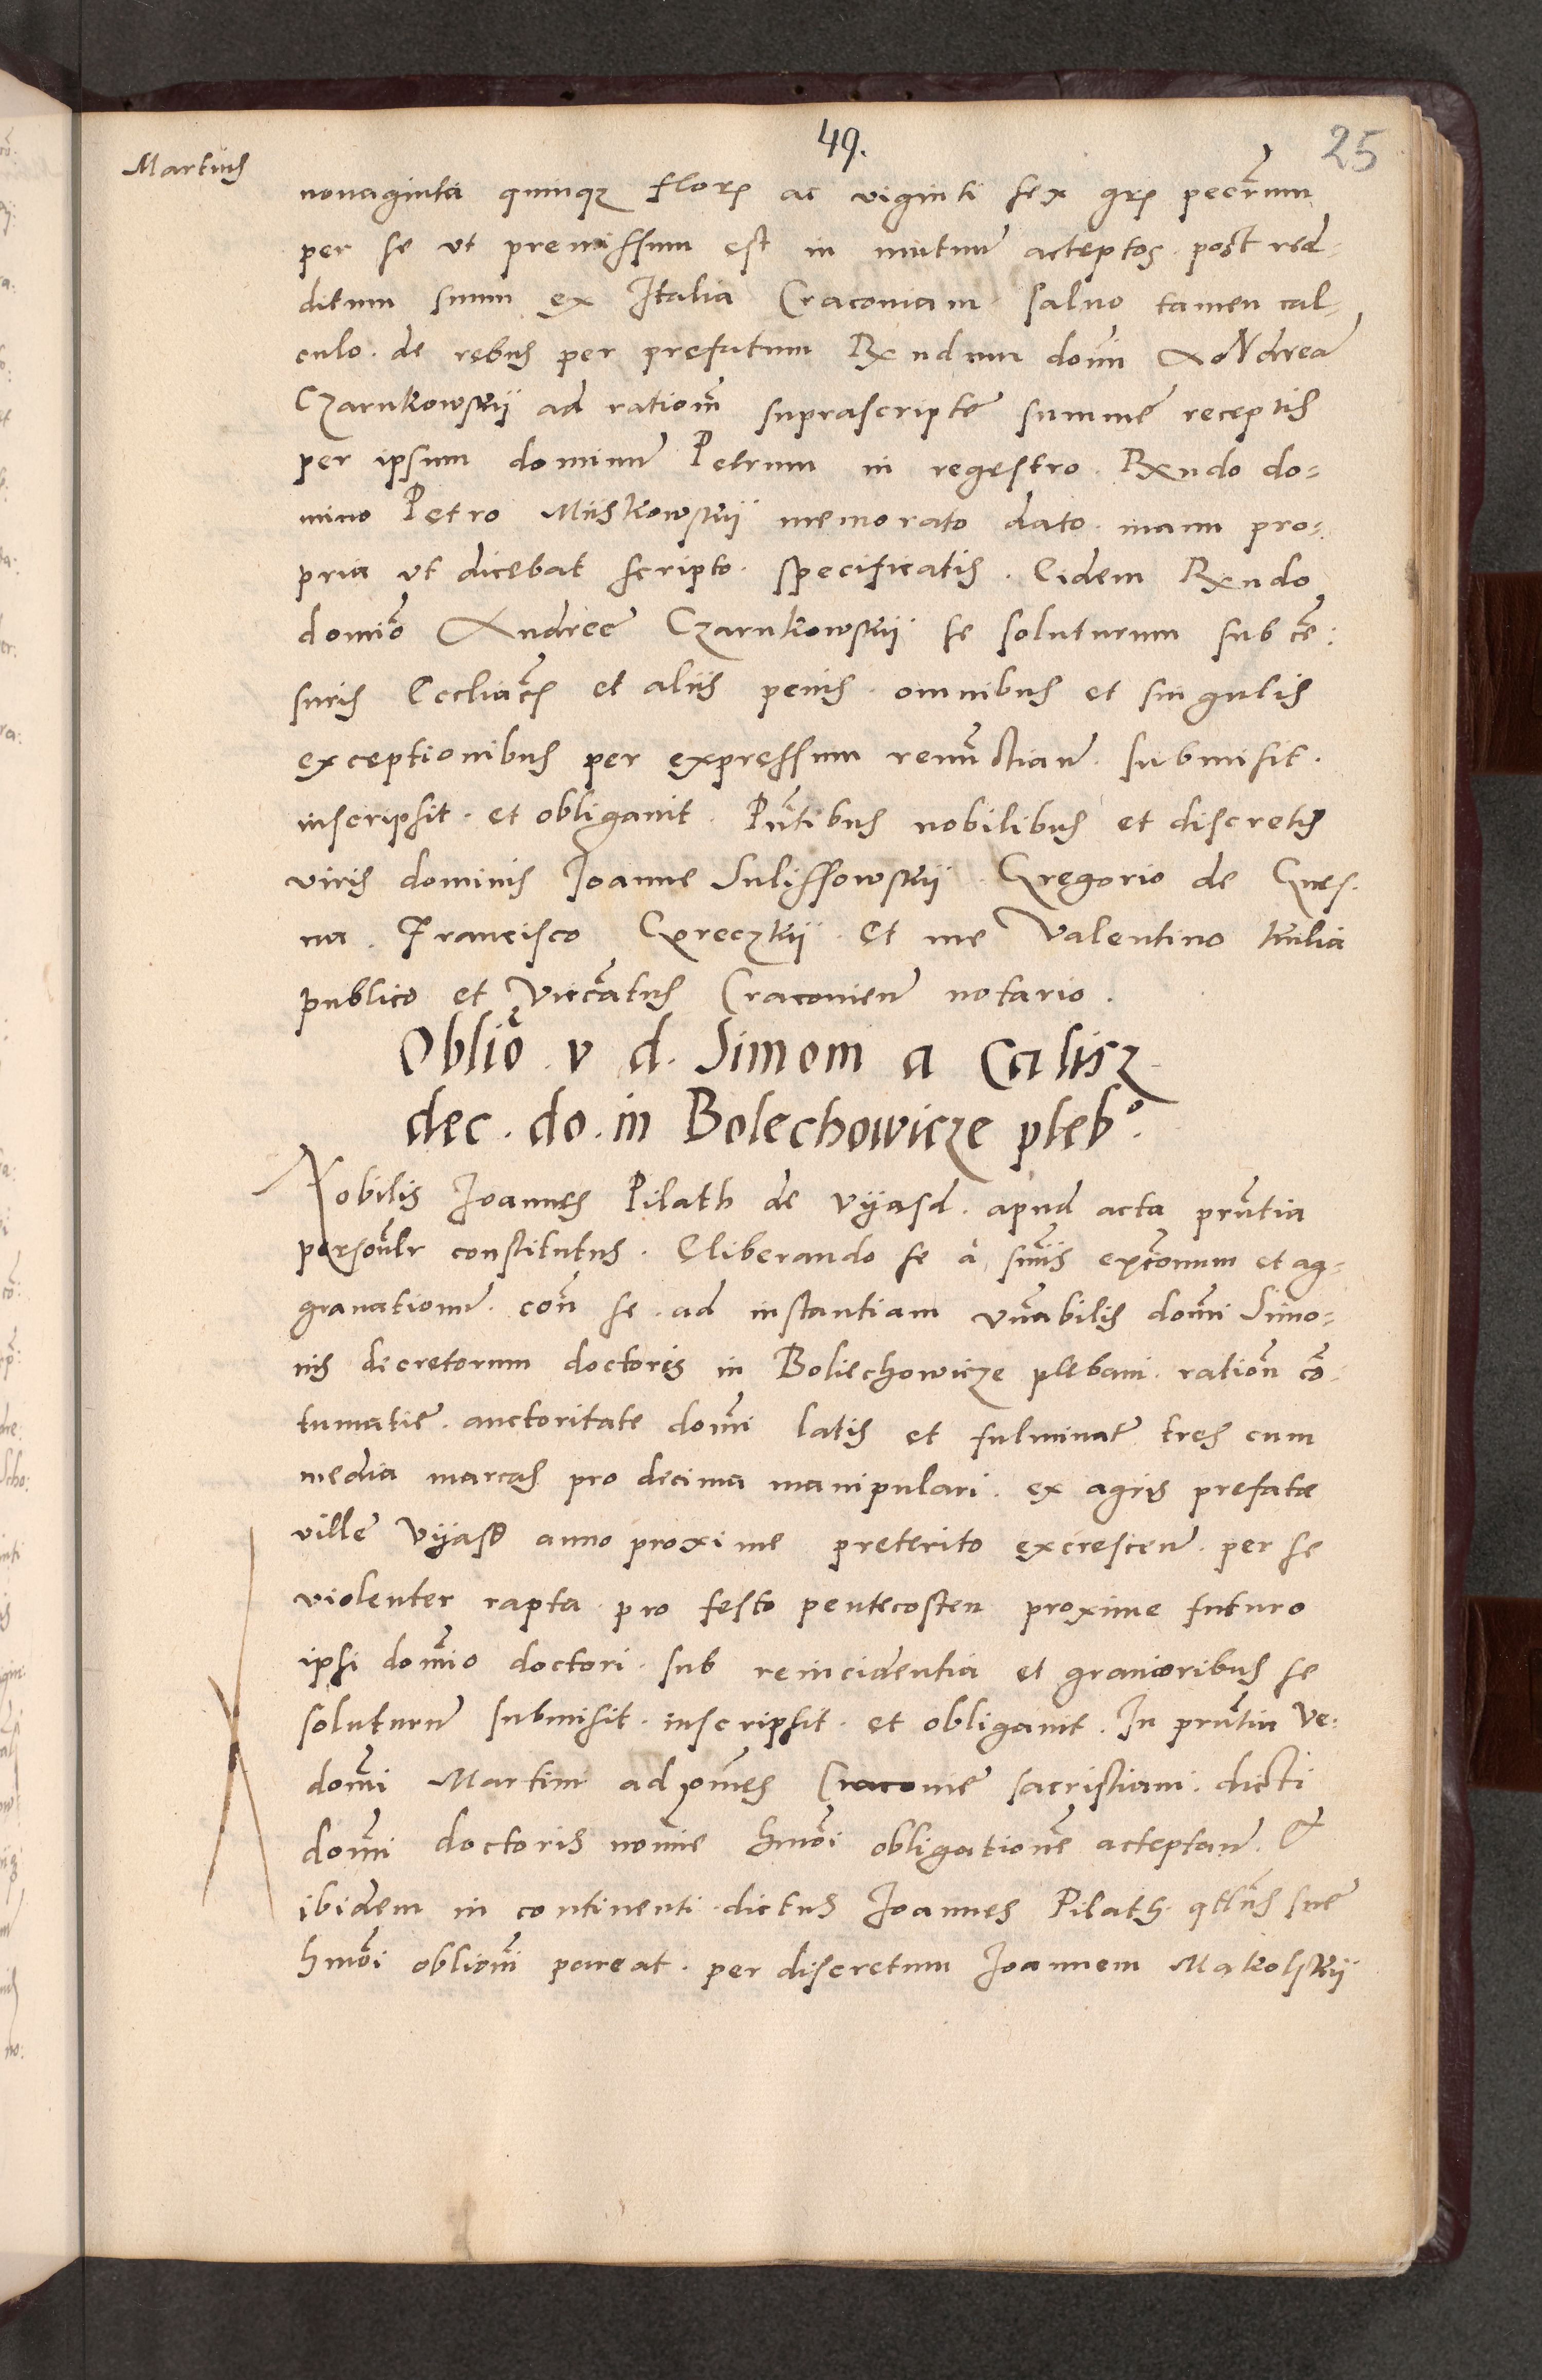 49.
25
Martius
nonaginta quinqz flor ac viginti sex gr pecũrum
per se vt premissum est in mutuũ acceptos post red-
ditum suum ex Italia Cracouiam saluo tamen cal-
culo de rebus per prefatum Rndum dom̃ Andreã
Czarnkowskÿ ad rationẽ suprascripte summe receptis
per ipsum dominũ Petrum in regestro Rndo do-
mino Petro Miskowskÿ memorato dato manu pro-
pria vt dicebat scripto specificatis. Eidem Rndo
domiõ Andree Czarnkowskÿ se soluturum sub cẽ:
suris Eccliãcis et aliis penis omnibus et singulis
exceptionibus per expressum renũctian̄ submisit.
inscripsit. et obligauit. Pñtibus nobilibus et discretis
viris dominis Joanne Sulissowskÿ Gregorio de Gnes.
na. Francisco Greczkÿ. et me Valentino Kulia
publico et Vicẽatus Cracouieñ notario.
Obliõ. v d. Simom a Calisz
dec. do. in Bolechowicze plebº.
Nobilis Joannes Pilath de Vÿasd. apud acta pñtia
persoñlr constitutus. Eliberando se à sñiis excõnum et ag-
grauationũ. con̄ se ad instantiam vñabilis domi Simo-
nis decretorum doctoris in Boliechowicze plebani ratioñ cõ-
tumatie. auctoritate domi latis et fulminat̃ tres cum
media marcas pro decima manipulari. ex agris prefatæ
ville Vÿasd anno proxime preterito excrescen̄. per se
violenter rapta pro festo pentecosten proxime futuro
ipsi domio doctori sub reincidentia et grauioribus se
soluturũ submisit. inscripsit. et obligauit. In pñtia Ve:
domi Martini ad omẽs Cracouie sacristiani. dicti
domi doctoris noĩe hmõi obligationẽ acceptan̄. Et
ibidem in continenti dictus Joannes Pilath qtñs sue
hmõi obliõni pareat. per discretum Joannem Makolskÿ